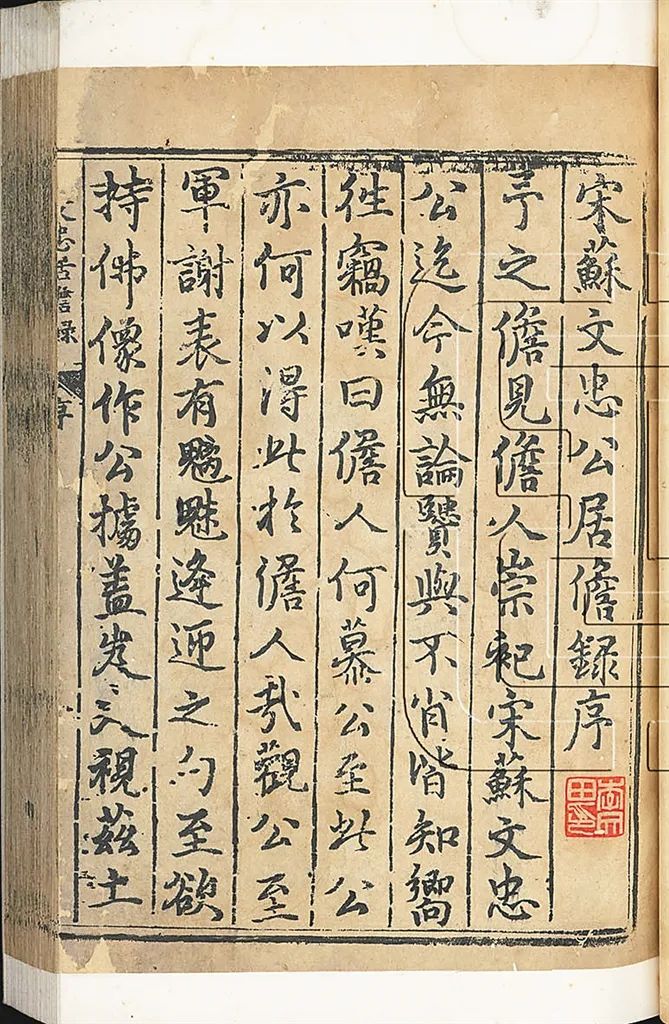 宋蘇文忠公居儋録序
予之儋見儋人崇祀宋蘇文忠
公迄今無論賢與不肖皆知嚮
徃竊嘆曰儋人何慕公至此公
亦何以得此於儋人哉觀公至
軍謝表有魑魅逄迎之勾至欲
持佛像作公據蓋視茲土
忠居儋録
序